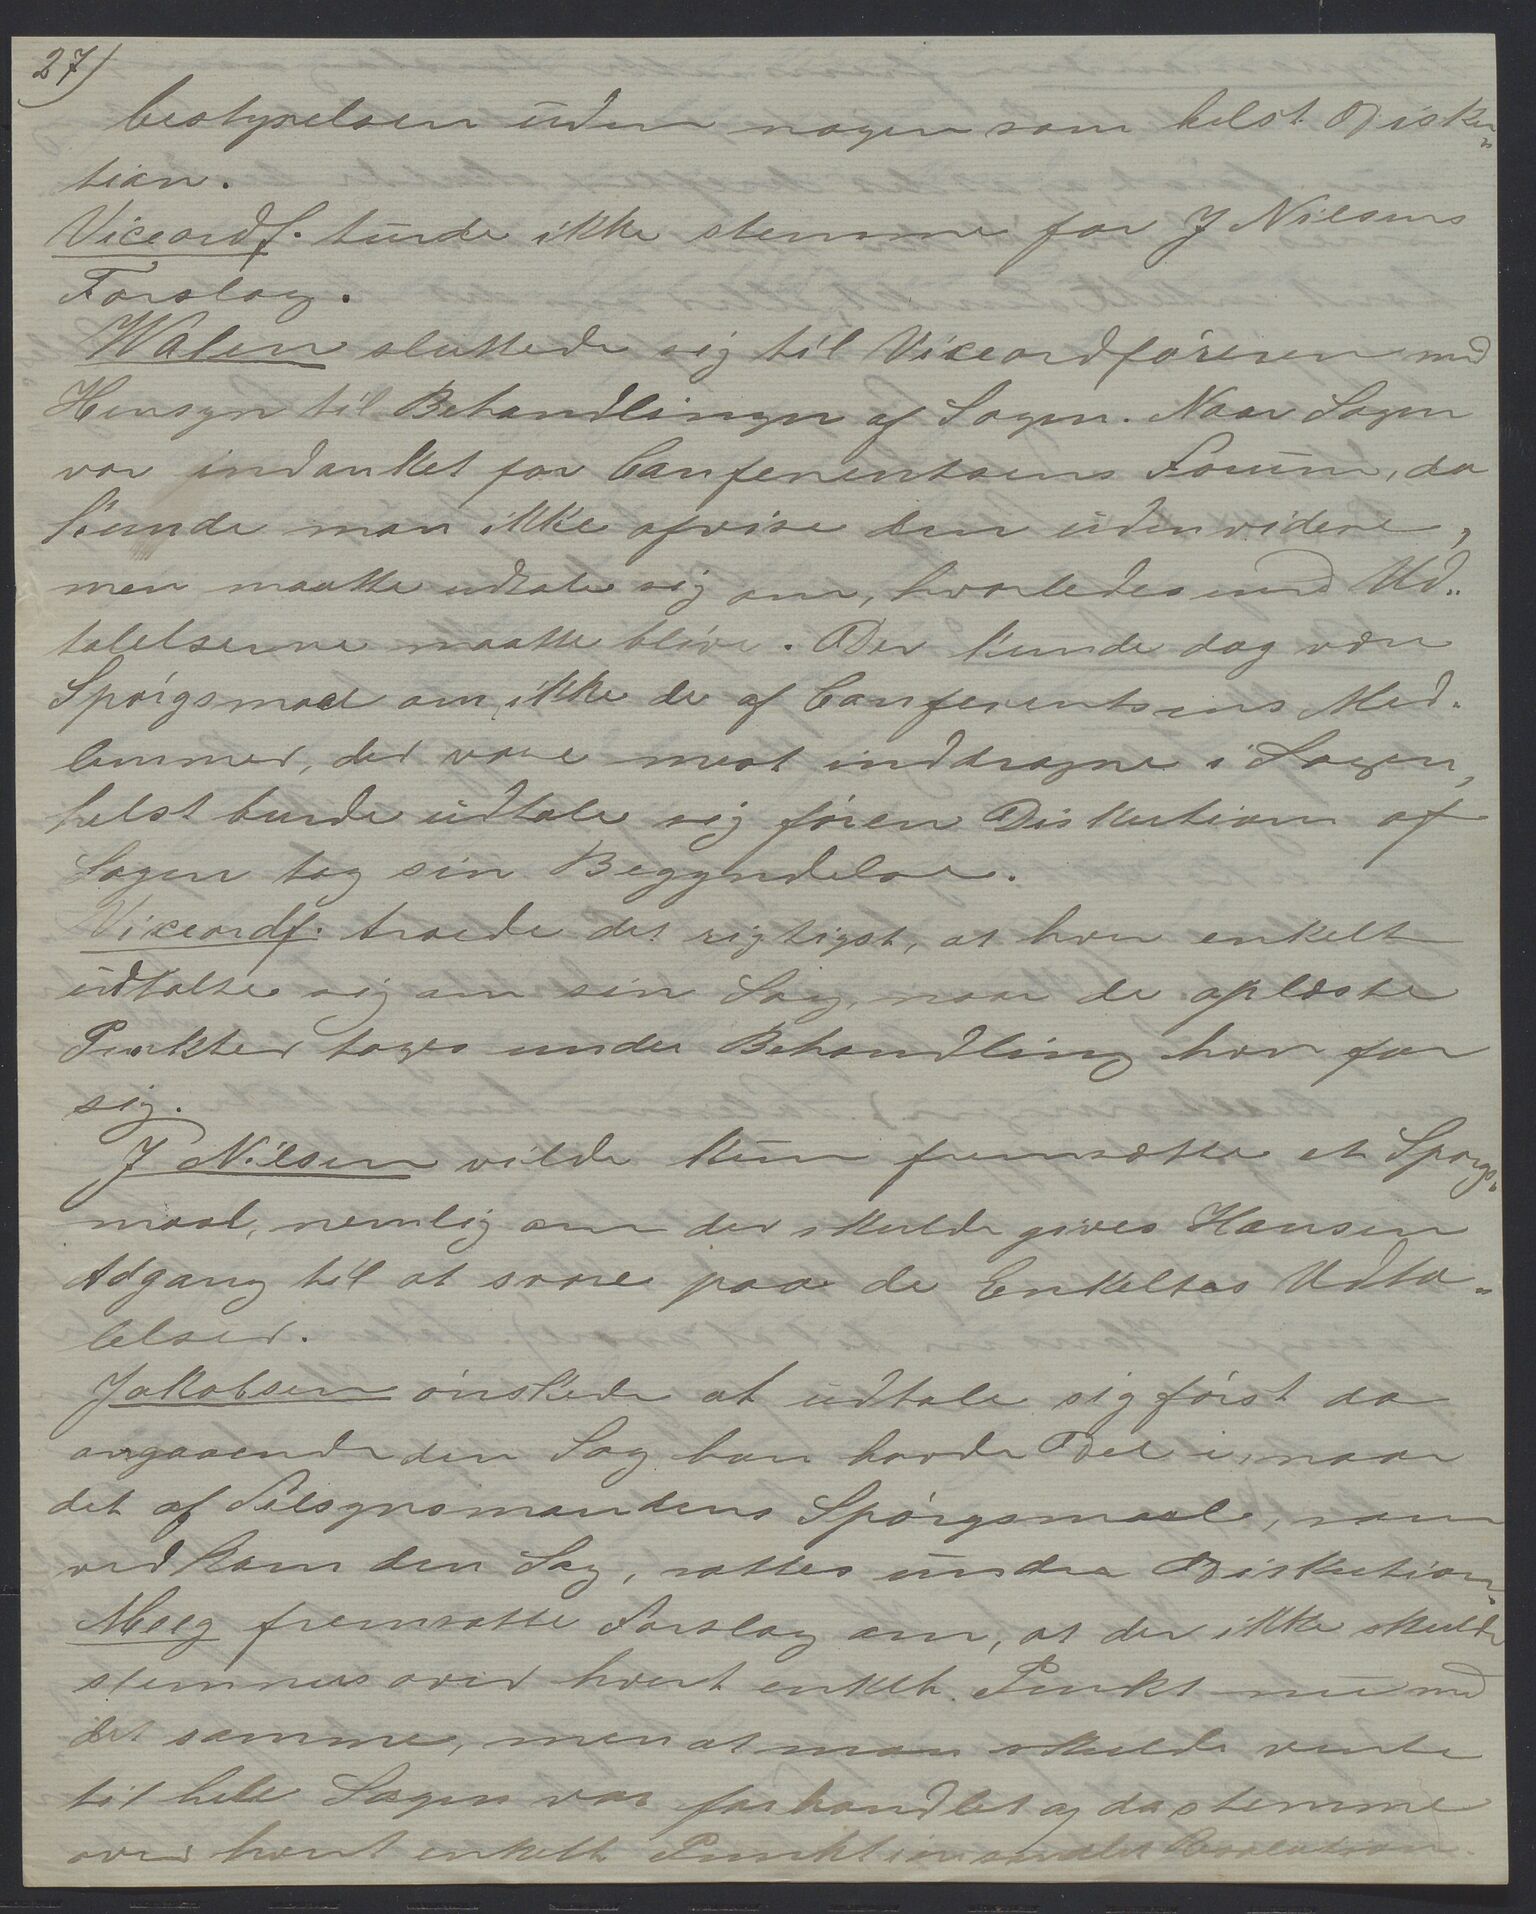 27)
bestyrelsen uden nogen som helst Disku„
tion.
Viceordf. turde ikke stemme for J Nilsens
Forslag.
Walen sluttede sig til Viceordföreren med
Hensyn til Behandlingen af Sagen. Naar Sagen
var indanket for Conferentsens Forum, da
kunde man ikke afvise den uden videre,
men maatte udtale sig om, hvorledes end Ud„
talelserne maatte blive. Der kunde dog være
Spörgsmaal om, ikke de af Conferentsens Med„
lemmer, der vare mest inddragne i Sagen,
helst burde udtale sig fören Diskution af
Sagen tog sin Begyndelse.
Viceordf. troede det rigtigst, at hver enkelt
udtalte sig om sin Sag, naar de oplæste
Punkter toges under Behandling hver for
sig.
J Nilsen vilde kun fremsætte et Spörgs„
maal, nemlig om der skulde gives Hansen
Adgang til at svare paa de Enkeltes Udta„
lelser.
Jakobsen önskede at udtale sig först da
angaaende den Sag han havde Del i, naar
det af Tilsynsmandens Spörgsmaal, som
vedkom den Sag, sattes under Diskution.
Meeg fremsatte Forslag om, at der ikke skulde
stemmes over hvert enkelt Punkt nu med
det samme, men at man skulde vente
til hele Sagen var forhandlet og da stemme
over hvert enkelt Punkt i en samlet Resolution.